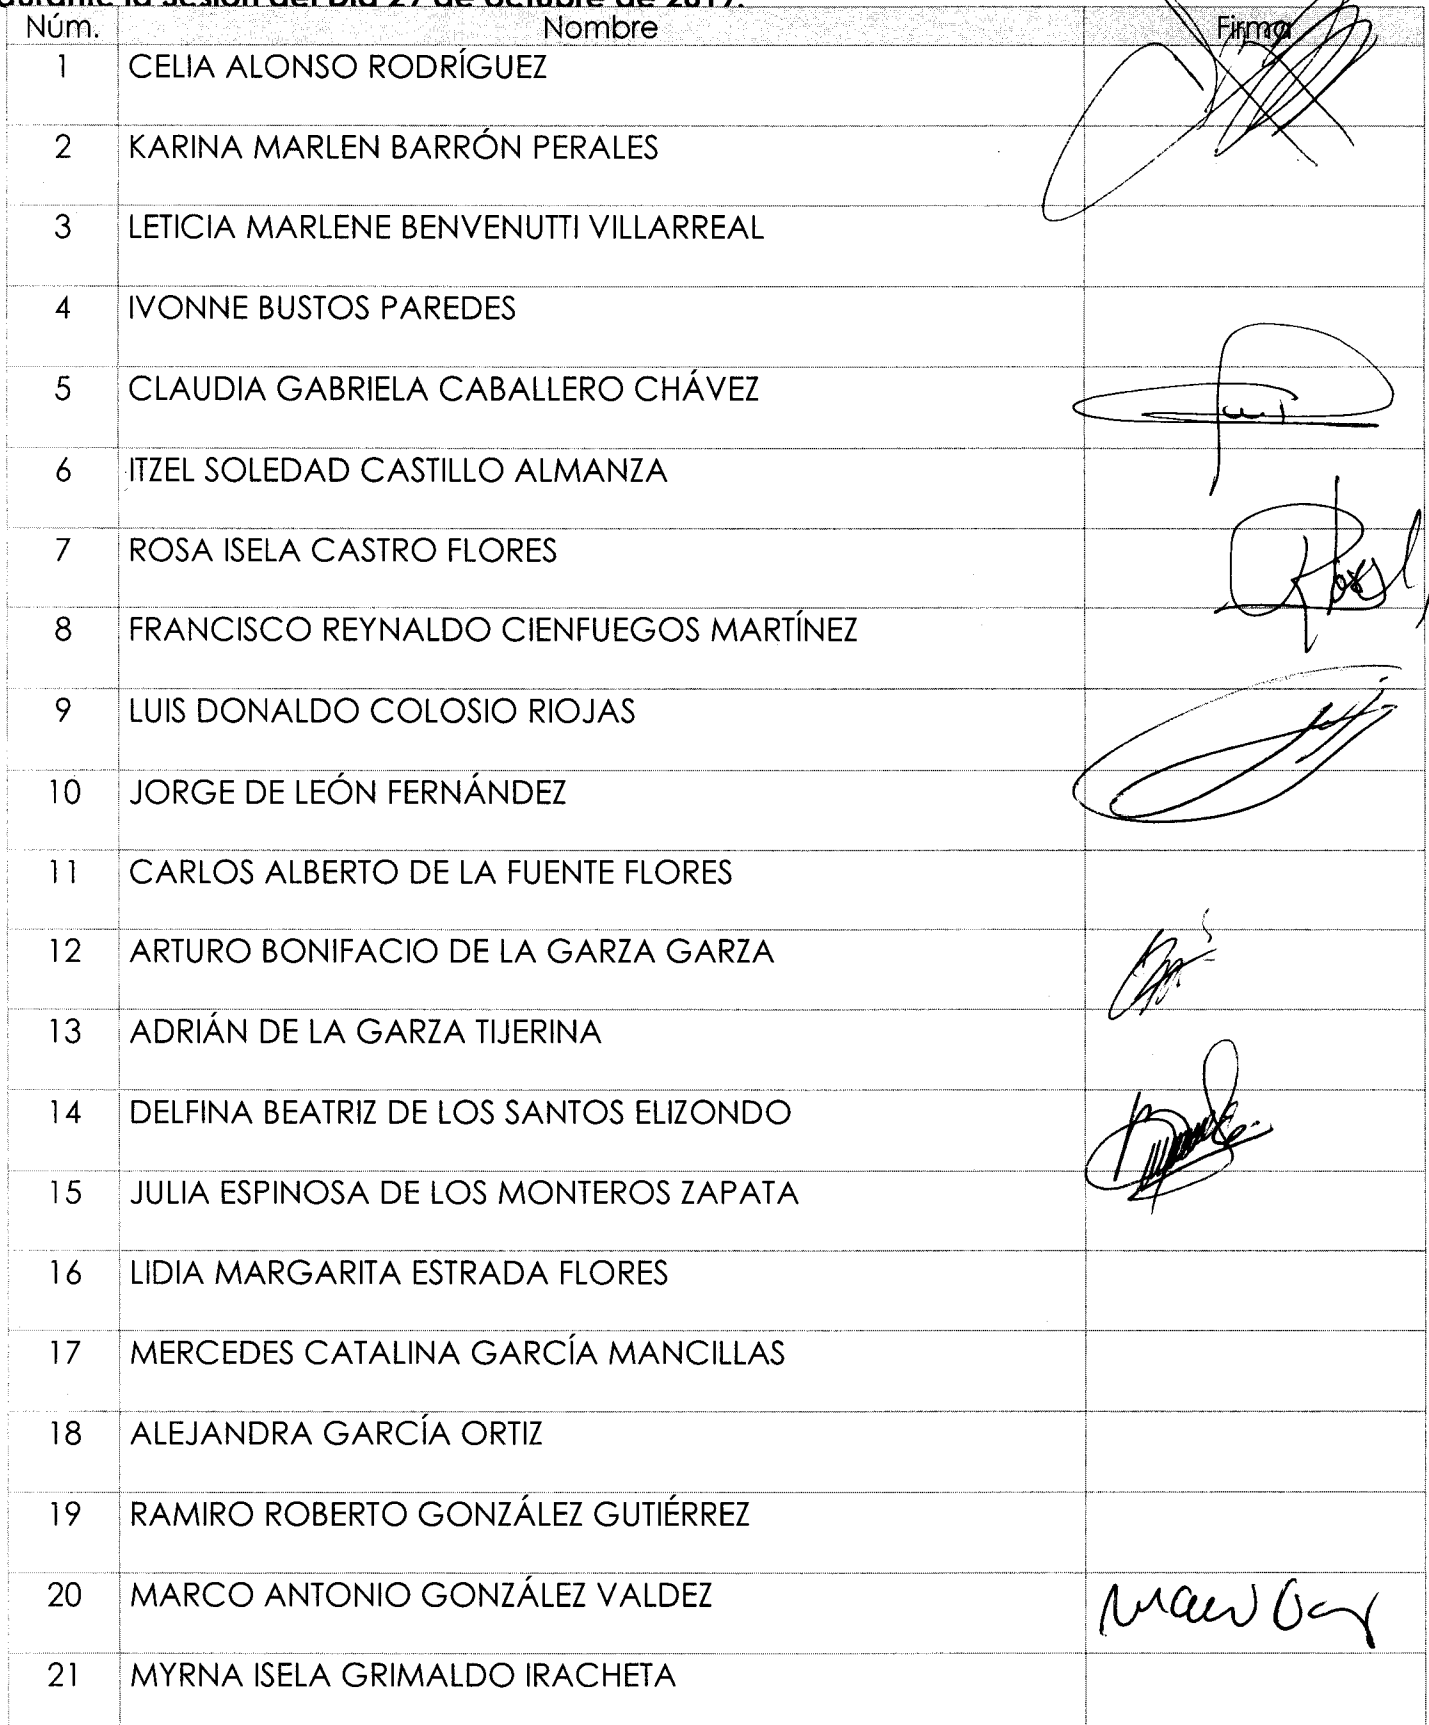 durante la Sesión del Día 29 de octubre de 2019.
Núm. Nombre Firma
1 CELIA ALONSO RODRÍGUEZ
2 KARINA MARLEN BARRÓN PERALES
3 LETICIA MARLENE BENVENUTTI VILLARREAL
4 IVONNE BUSTOS PAREDES
5 CLAUDIA GABRIELA CABALLERO CHÁVEZ
6 ITZEL SOLEDAD CASTILLO ALMANZA
7 ROSA ISELA CASTRO FLORES
8 FRANCISCO REYNALDO CIENFUEGOS MARTÍNEZ
9 LUIS DONALDO COLOSIO RIOJAS
10 JORGE DE LEÓN FERNÁNDEZ
11 CARLOS ALBERTO DE LA FUENTE FLORES
12 ARTURO BONIFACIO DE LA GARZA GARZA
13 ADRIÁN DE LA GARZA TIJERINA
14 DELFINA BEATRIZ DE LOS SANTOS ELIZONDO
15 JULIA ESPINOSA DE LOS MONTEROS ZAPATA
16 LIDIA MARGARITA ESTRADA FLORES
17 MERCEDES CATALINA GARCÍA MANCILLAS
18 ALEJANDRA GARCÍA ORTIZ
19 RAMIRO ROBERTO GONZÁLEZ GUTIÉRREZ
20 MARCO ANTONIO GONZÁLEZ VALDEZ
21 MYRNA ISELA GRIMALDO IRACHETA